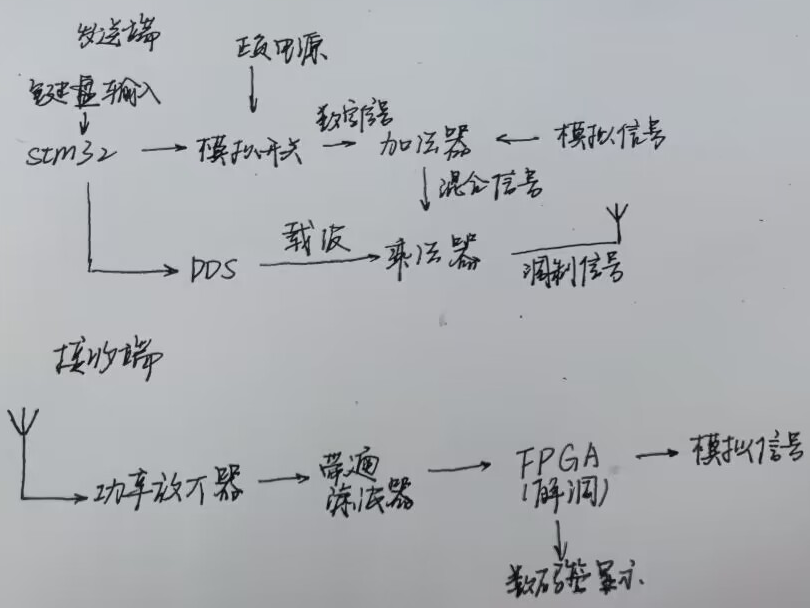 发送端
正负电源
键盘输入
stm32
模拟开关
数字信号
加法器
模拟信号
混合信号
载波
DDS
乘法器
调制信号
接收端
功率放大器
带通
滤波器
FPGA
(解调)
模拟信号
数码管显示